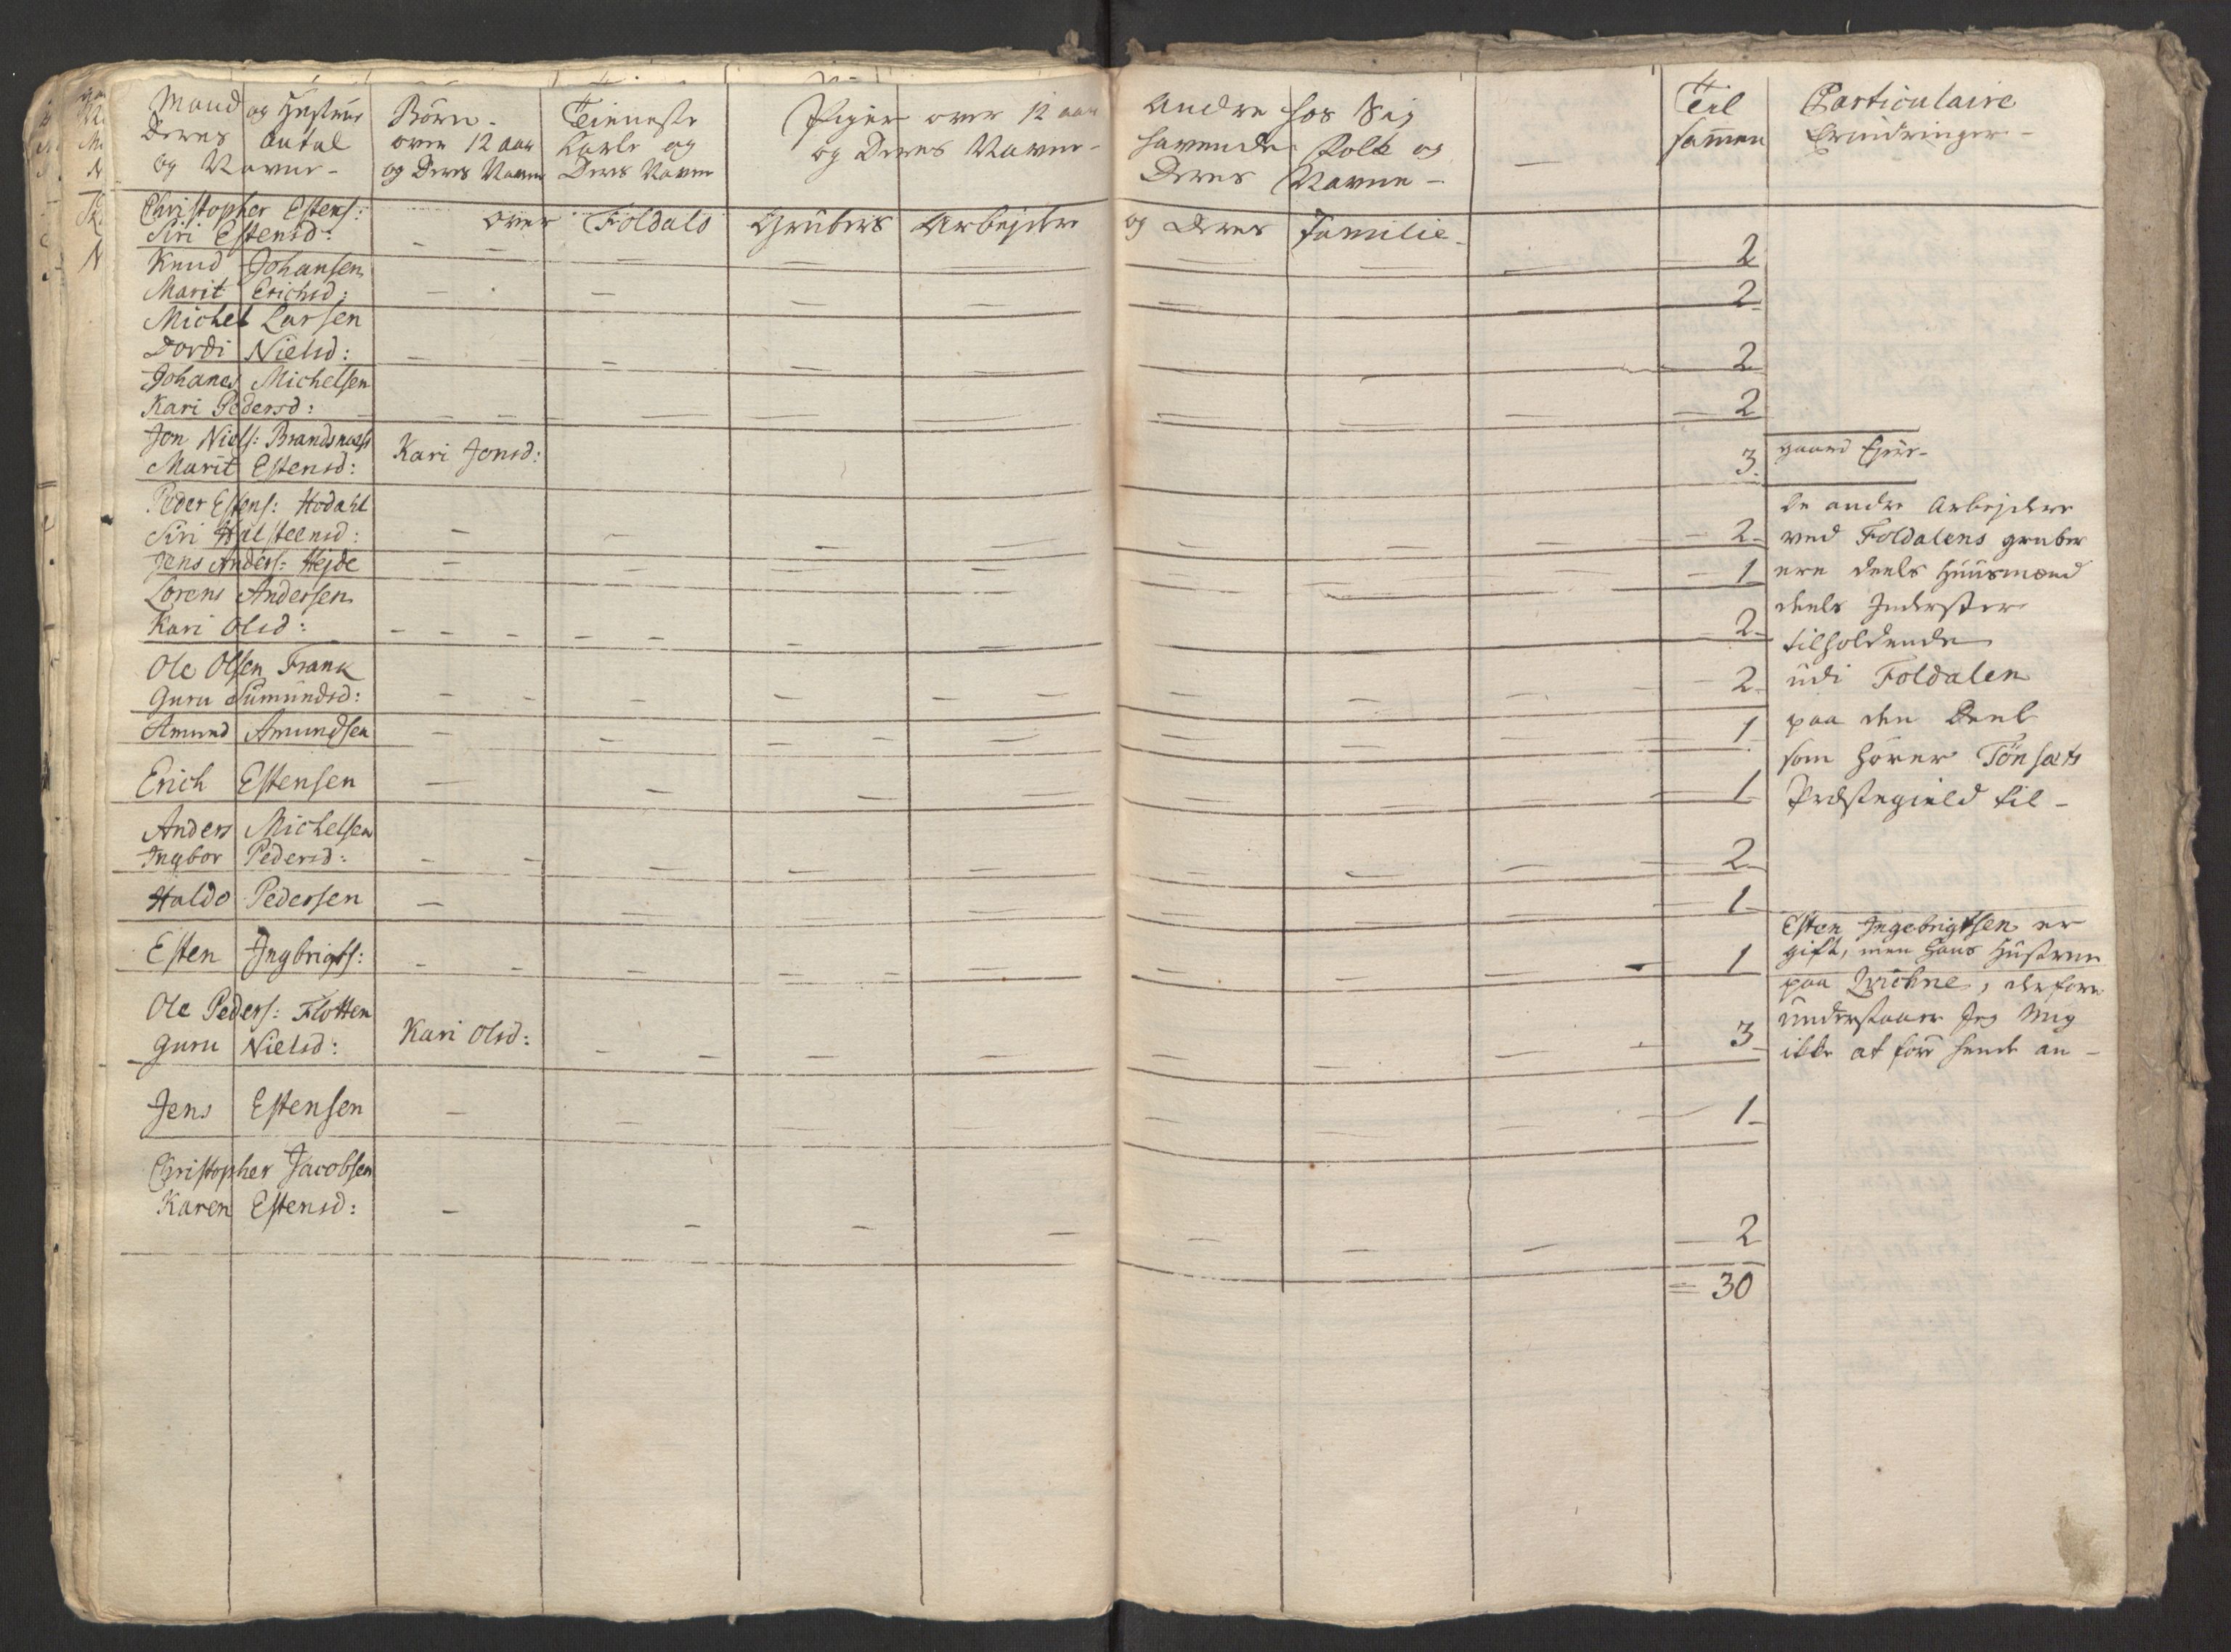 Mand og Hustrues
Deres Antal
og Navne -
Börn -
over 12 aar
og Deres Navne
Tieneste
Karle og
Deres Navne
Piger over 12 aar
og Deres Navne -
Andre hos Sig
havende Folk og
Deres Navne -
Til
sam̄en
Particulaire
Erindringer -
over Foldals Grubers Arbejdere og Deres Familie -
Christopher Estens:
Siri Estensd: 2
Knud Johansen
Marit Erichsd: 2
Michel Larsen
Dordi Nielsd: 2
Johanes Michelsen
Kari Pedersd: 2
Jon Niels: Brandsnæss
Marit Estensd: Kari Jonsd: 3.
gaard Ejer -
Peder Estens: Hodahl
Siri Halsteensd: 2
Jens Anders: Hejde 1
Lorens Andersen
Kari Olsd: 2
Ole Olsen Frank
Guru Simundsd: 2
Amund Amundsen 1
Erich Estensen 1
de andre Arbejdere
ved Foldalens gruber
ere deels Huusmænd
deels Inderster
tilholdende
udi Foldalen
paa den Deel
som hörer Tönsæts
Præstegield til -
Anders Michelsen
Ingbor Pedersd: 2
Haldo Pedersen 1
Esten Ingbrigts: 1
Esten Ingebrigtsen er
gift, men hans Hustrue
paa, derfore
understaaer Jeg Mig
ikke at före hende an -
Ole Peders: Flotten
Guru Nielsd: Kari Olsd: 3
Jens Estensen 1
Christopher Jacobsen
Karen Estensd: 2
30